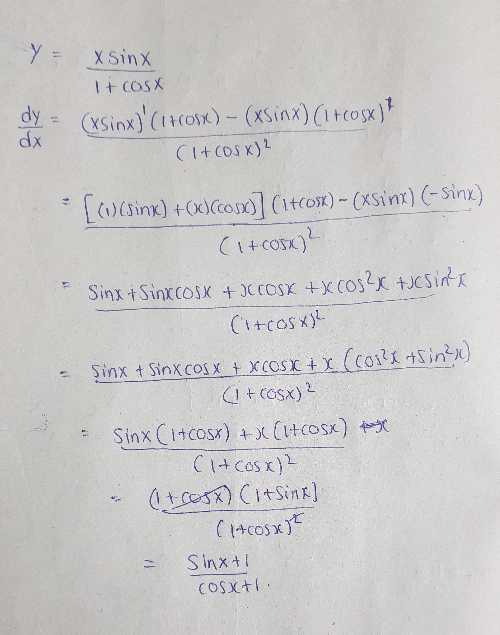 y = x sinx / 1 + cosx
dy/dx = (x sinx)' (1+cosx) - (x sinx) (1+cosx)' / (1+cosx)²
= [(1)(sinx) + (x)(cosx)] (1+cosx) - (x sinx) (-sinx) / (1+cosx)²
= sinx + sinx cosx + x cosx + x cos²x + x sin²x / (1+cosx)²
= sinx + sinx cosx + x cosx + x (cos²x + sin²x) / (1+cosx)²
= sinx (1+cosx) + x (1+cosx) / (1+cosx)²
= (1+cosx) (1+sinx] / (1+cosx)²
= sinx+1 / cosx+1.